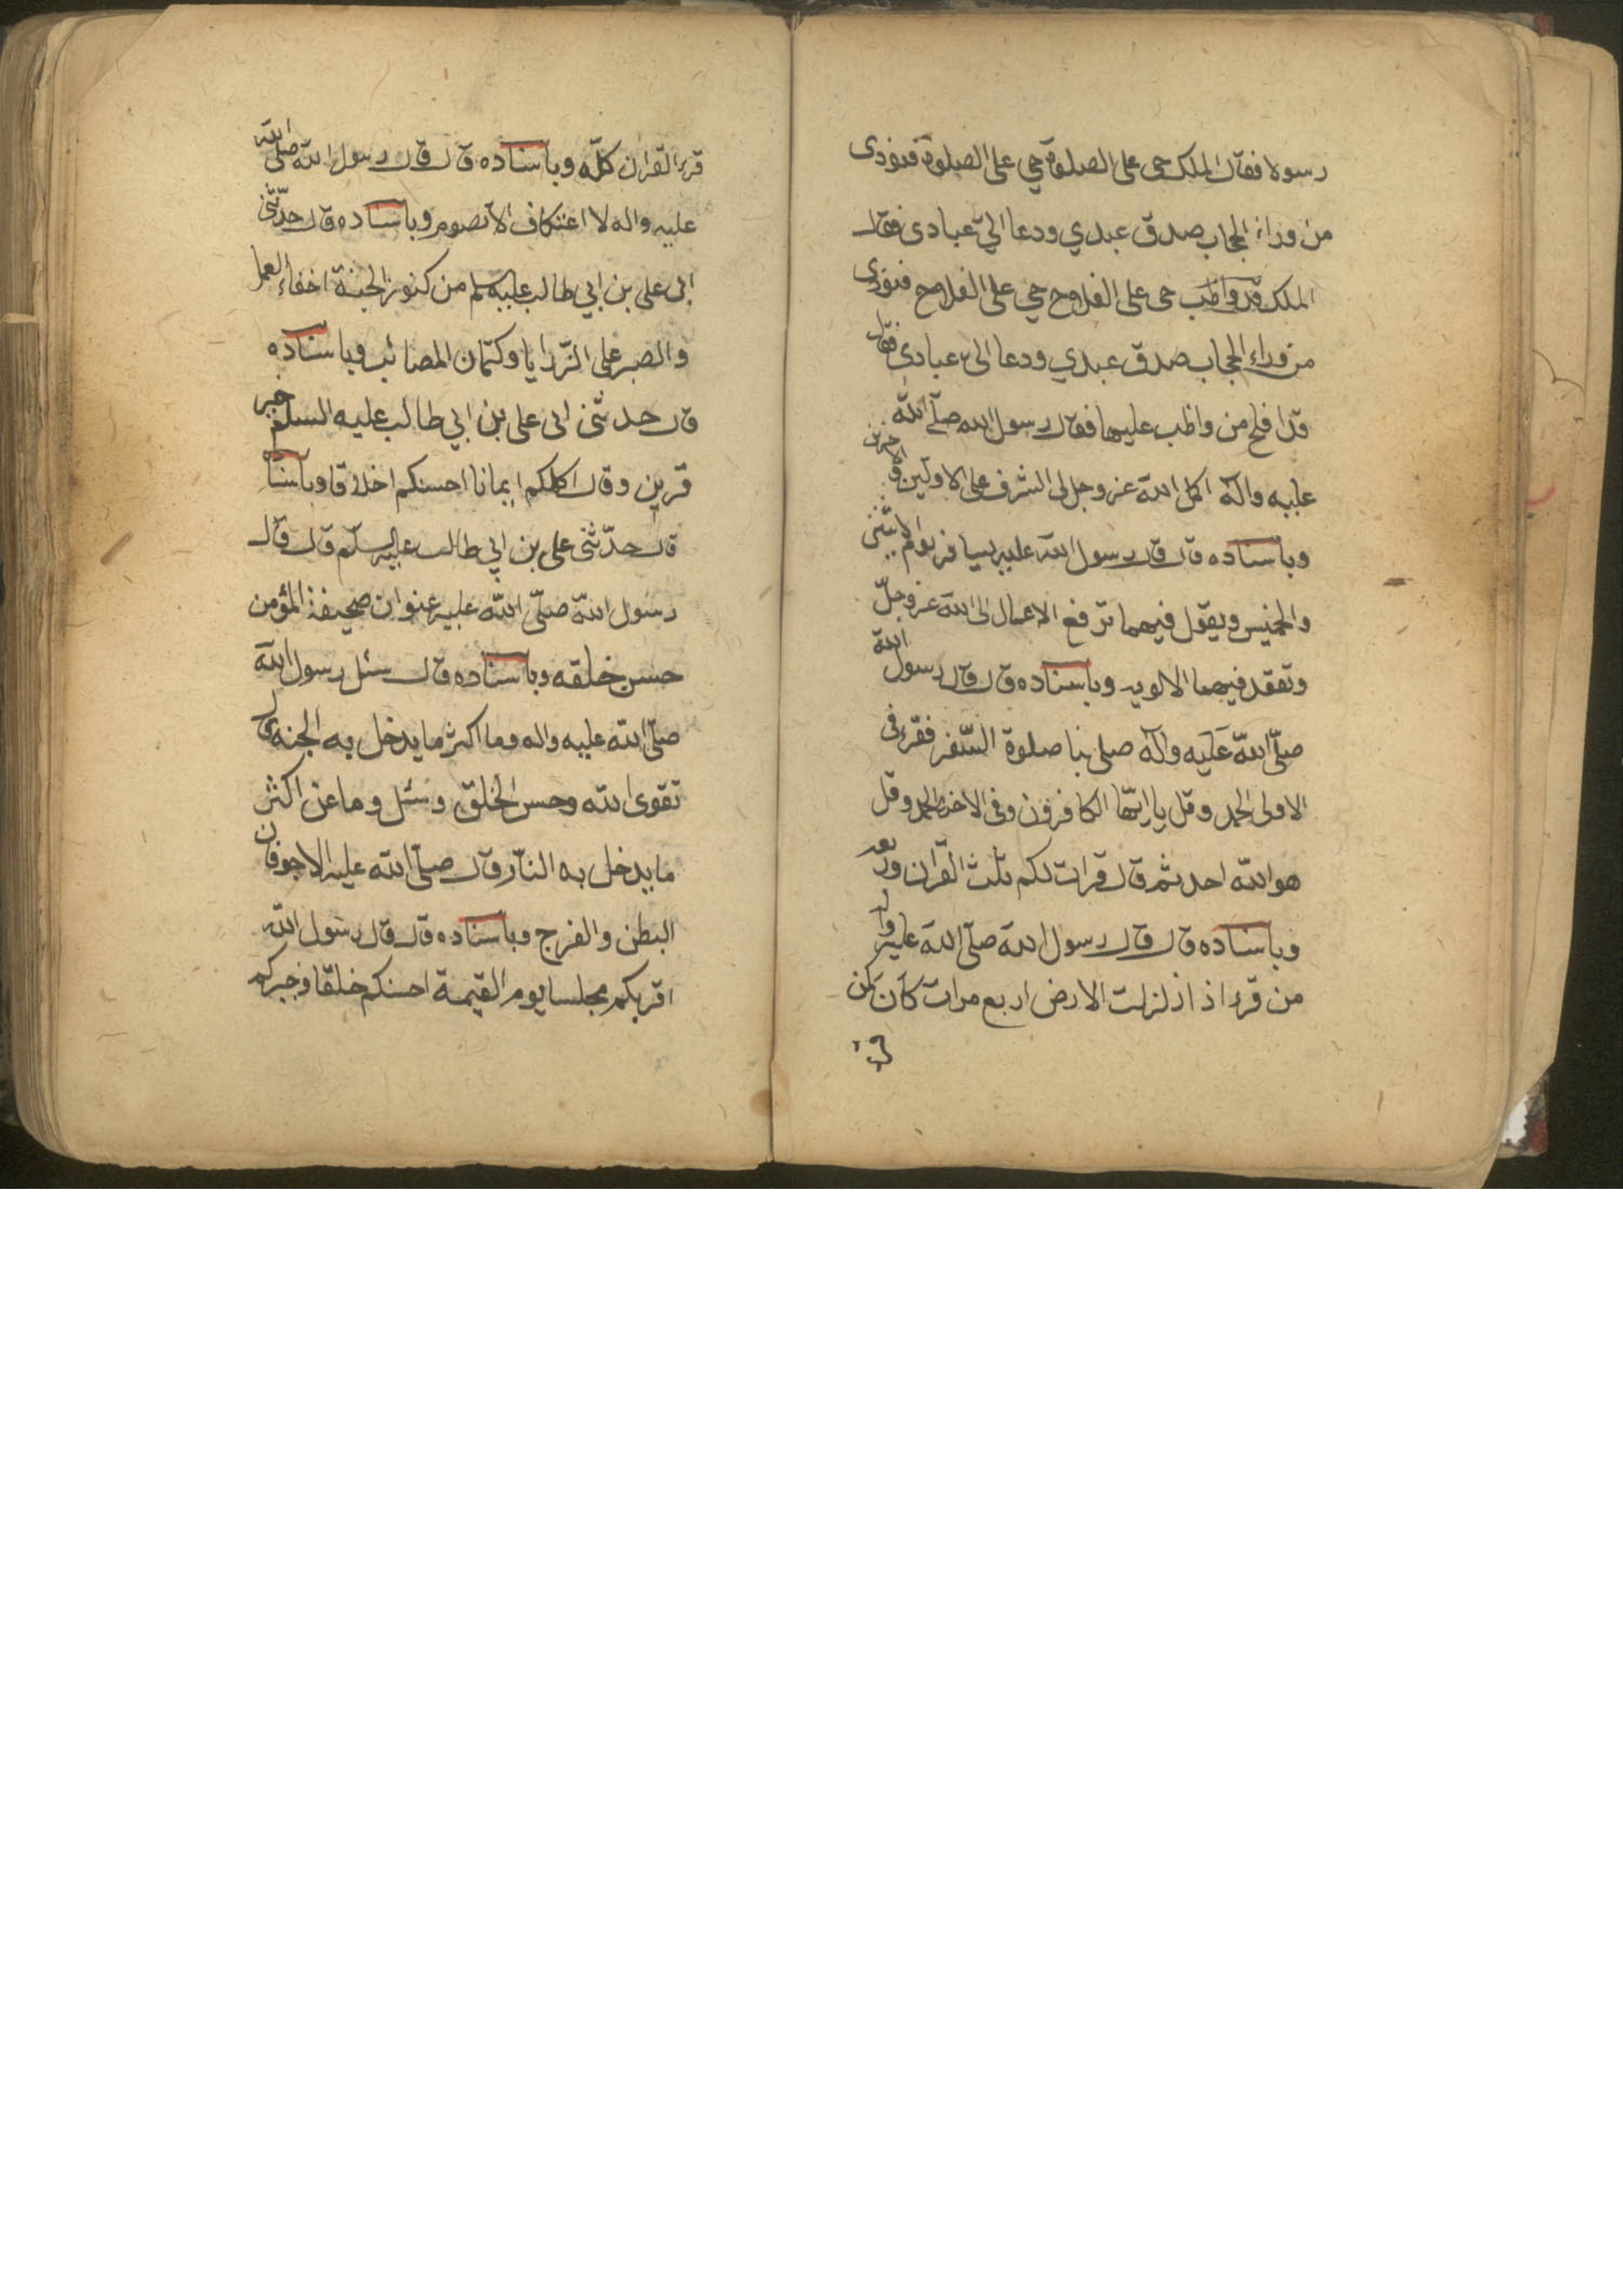 رسولا فقال الملك حى على الصلوة حي على الصلوة فنودى
من وراء الحجاب صدق عبدي ودعا الي عبادى فقال
الملك قد واظب حى على الفلاح حي على الفلاح فنودى
من وراء الحجاب صدق عبدي ودعا الى عبادى فقال
قد افلح من واظب عليها فقال رسول الله صلى الله
عليه وآله اكمل الله عز وجل لى الشرف على الاولين والاخرين
وباسناده قال قال رسول الله عليه يسافر يوم الاثنين
والخميس ويقول فيهما ترفع الاعمال الى الله عز وجلّ
وتعقد فيهما الالويه وباسناده قال قال رسول الله
صلّى اللّه عَليَه وآله صلى بنا صلوة السّفر فقرء فى
الاولى الحمد وقل يا ايّها الكافرون وفى الاخرى الحمد وقل
هو الله احد ثم قال قرات لكم ثلث القرآن وربعه
وباسناده قال قال رسول الله صلّى الله عليه واله
من قرء اذا زلزلت الارض اربع مرات كان كمن
قرء
قرء القران كلّه وباسناده قال قال رسول الله صلى الله
عليه واله لا اعتكاف الا بصوم وباسناده قال حدّثنى
ابى على بن ابي طالب عليه السلم من كنوز الجنة اخفاء العمل
والصبر على الرّزايا وكتمان المصائب وباسناده
قال حدثنى ابى على بن ابي طالب عليه السلم خير
قرين وقال اكملكم ايمانا احسنكم اخلاقا وباسناده
قال حدّثنى على بن ابي طالب عليه السلم قال قال
رسول اللّه صلّى اللّه عليه عنوان صحيفة المؤمن
حسن خلقه وباسناده قال سئل رسول الله
صلّى الله عليه واله وما اكثر ما يدخل به الجنه قال
تقوى الله وحسن الخلق وسئل وما عن اكثر
ما يدخل به النّار قال صلّى الله عليه الاجوفان
البطن والفرج وباسناده قال قال رسول اللّه
اقربكم مجلسا يوم القيمة احسنكم خلقا وخيركم